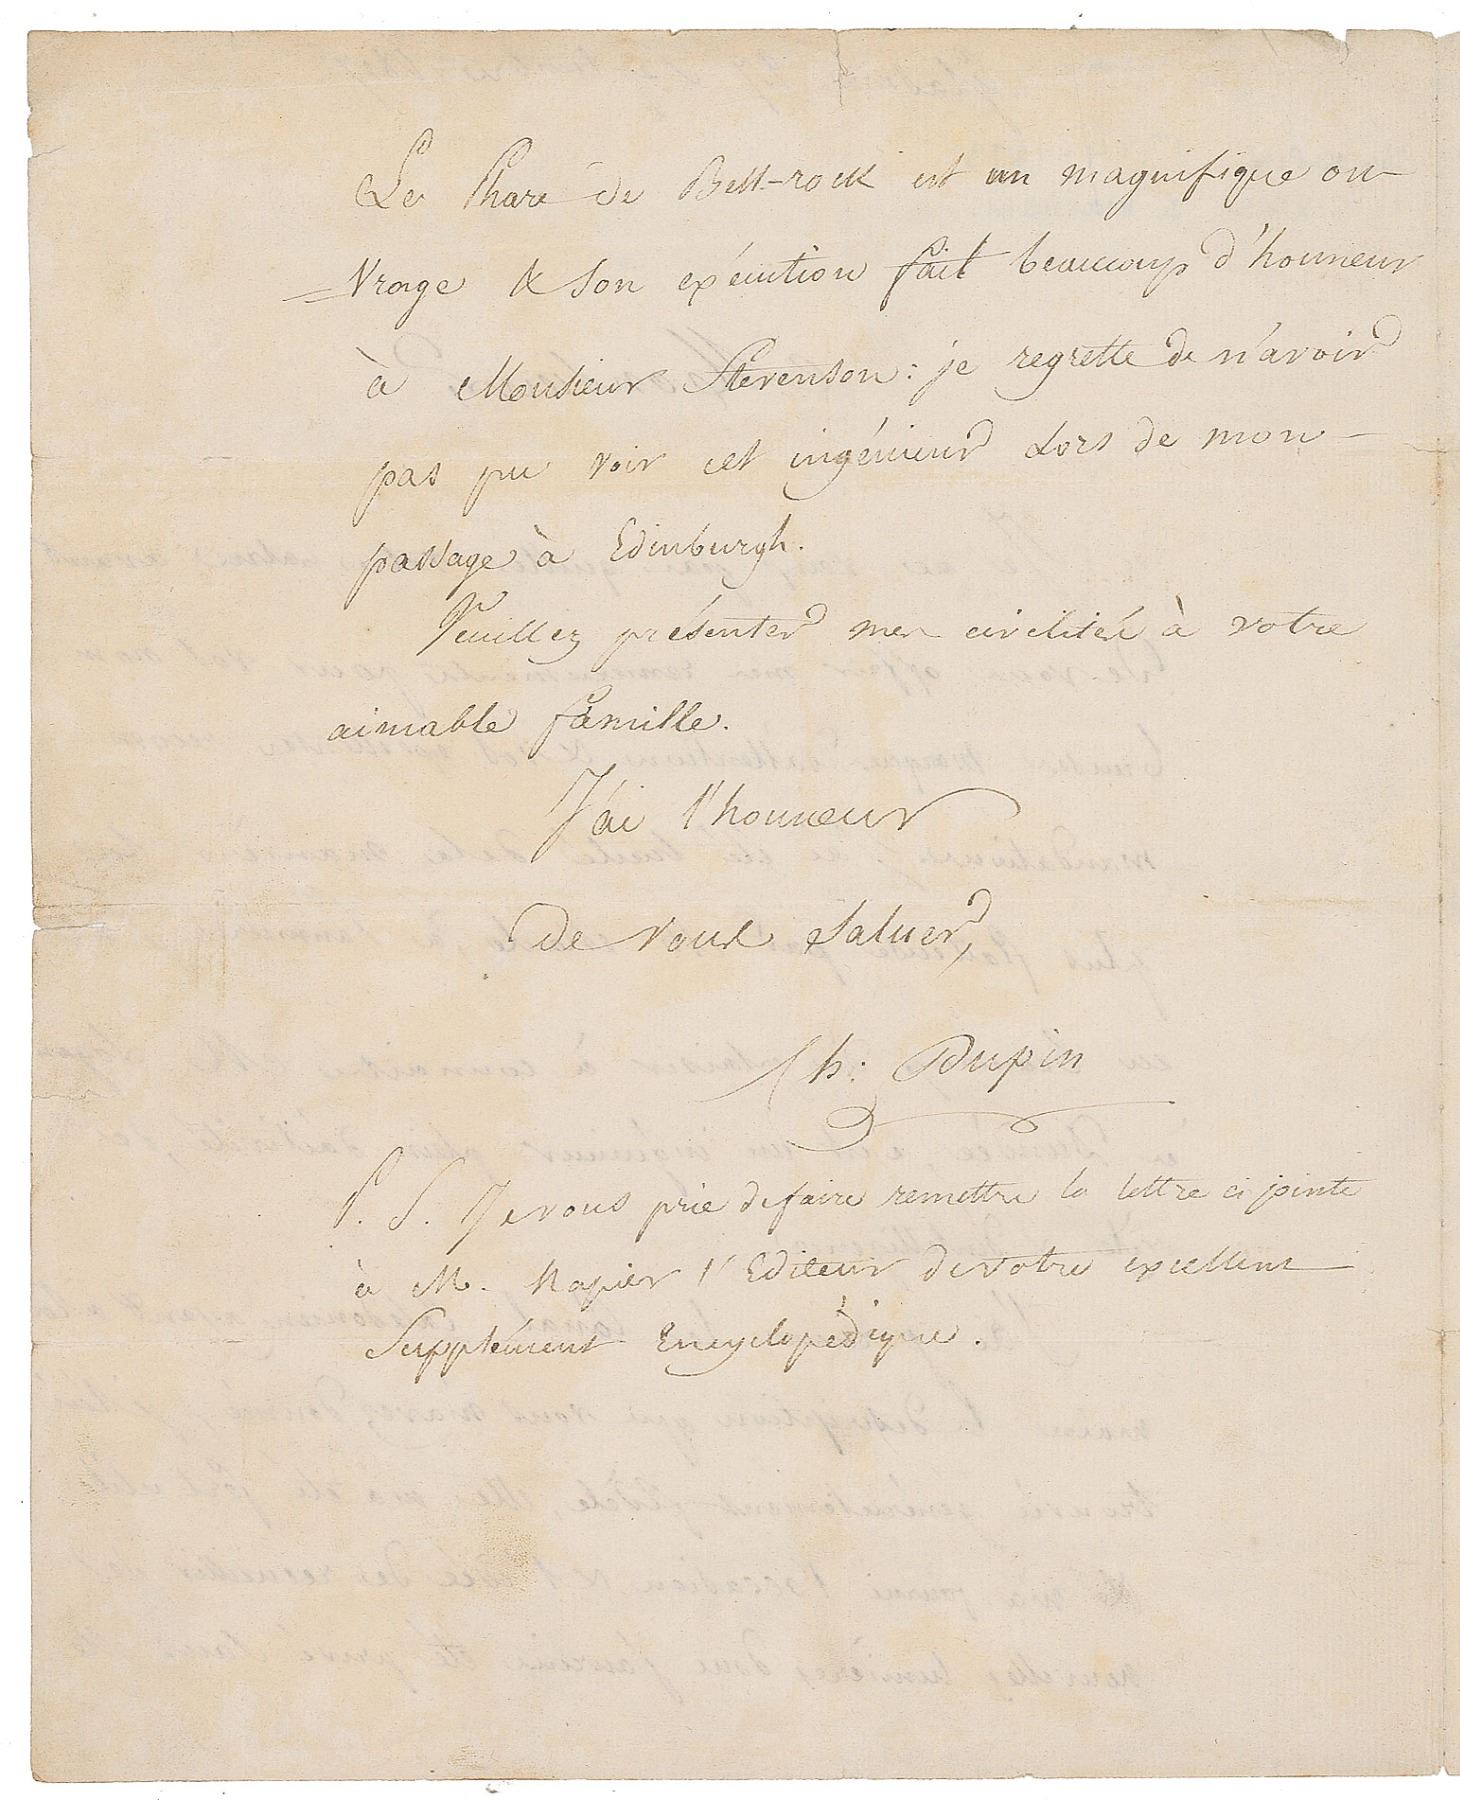 Le Phare de Bell-rock est un magnifique ou-
=vrage & son exécution fait beaucoup d'honneur
à Monsieur Stevenson: je regrette de n'avoir
pas pu voir cet ingénieur lors de mon
passage à Edinburgh.
Veuillez présenter mes civilités à votre
aimable famille.
J'ai l'honneur
de vous saluer,
Ch: Dupin
P. S. Je vous prie de faire remettre la lettre ci jointe
à M. Napier l'Editeur de votre excellent
Supplément Encyclopédique.